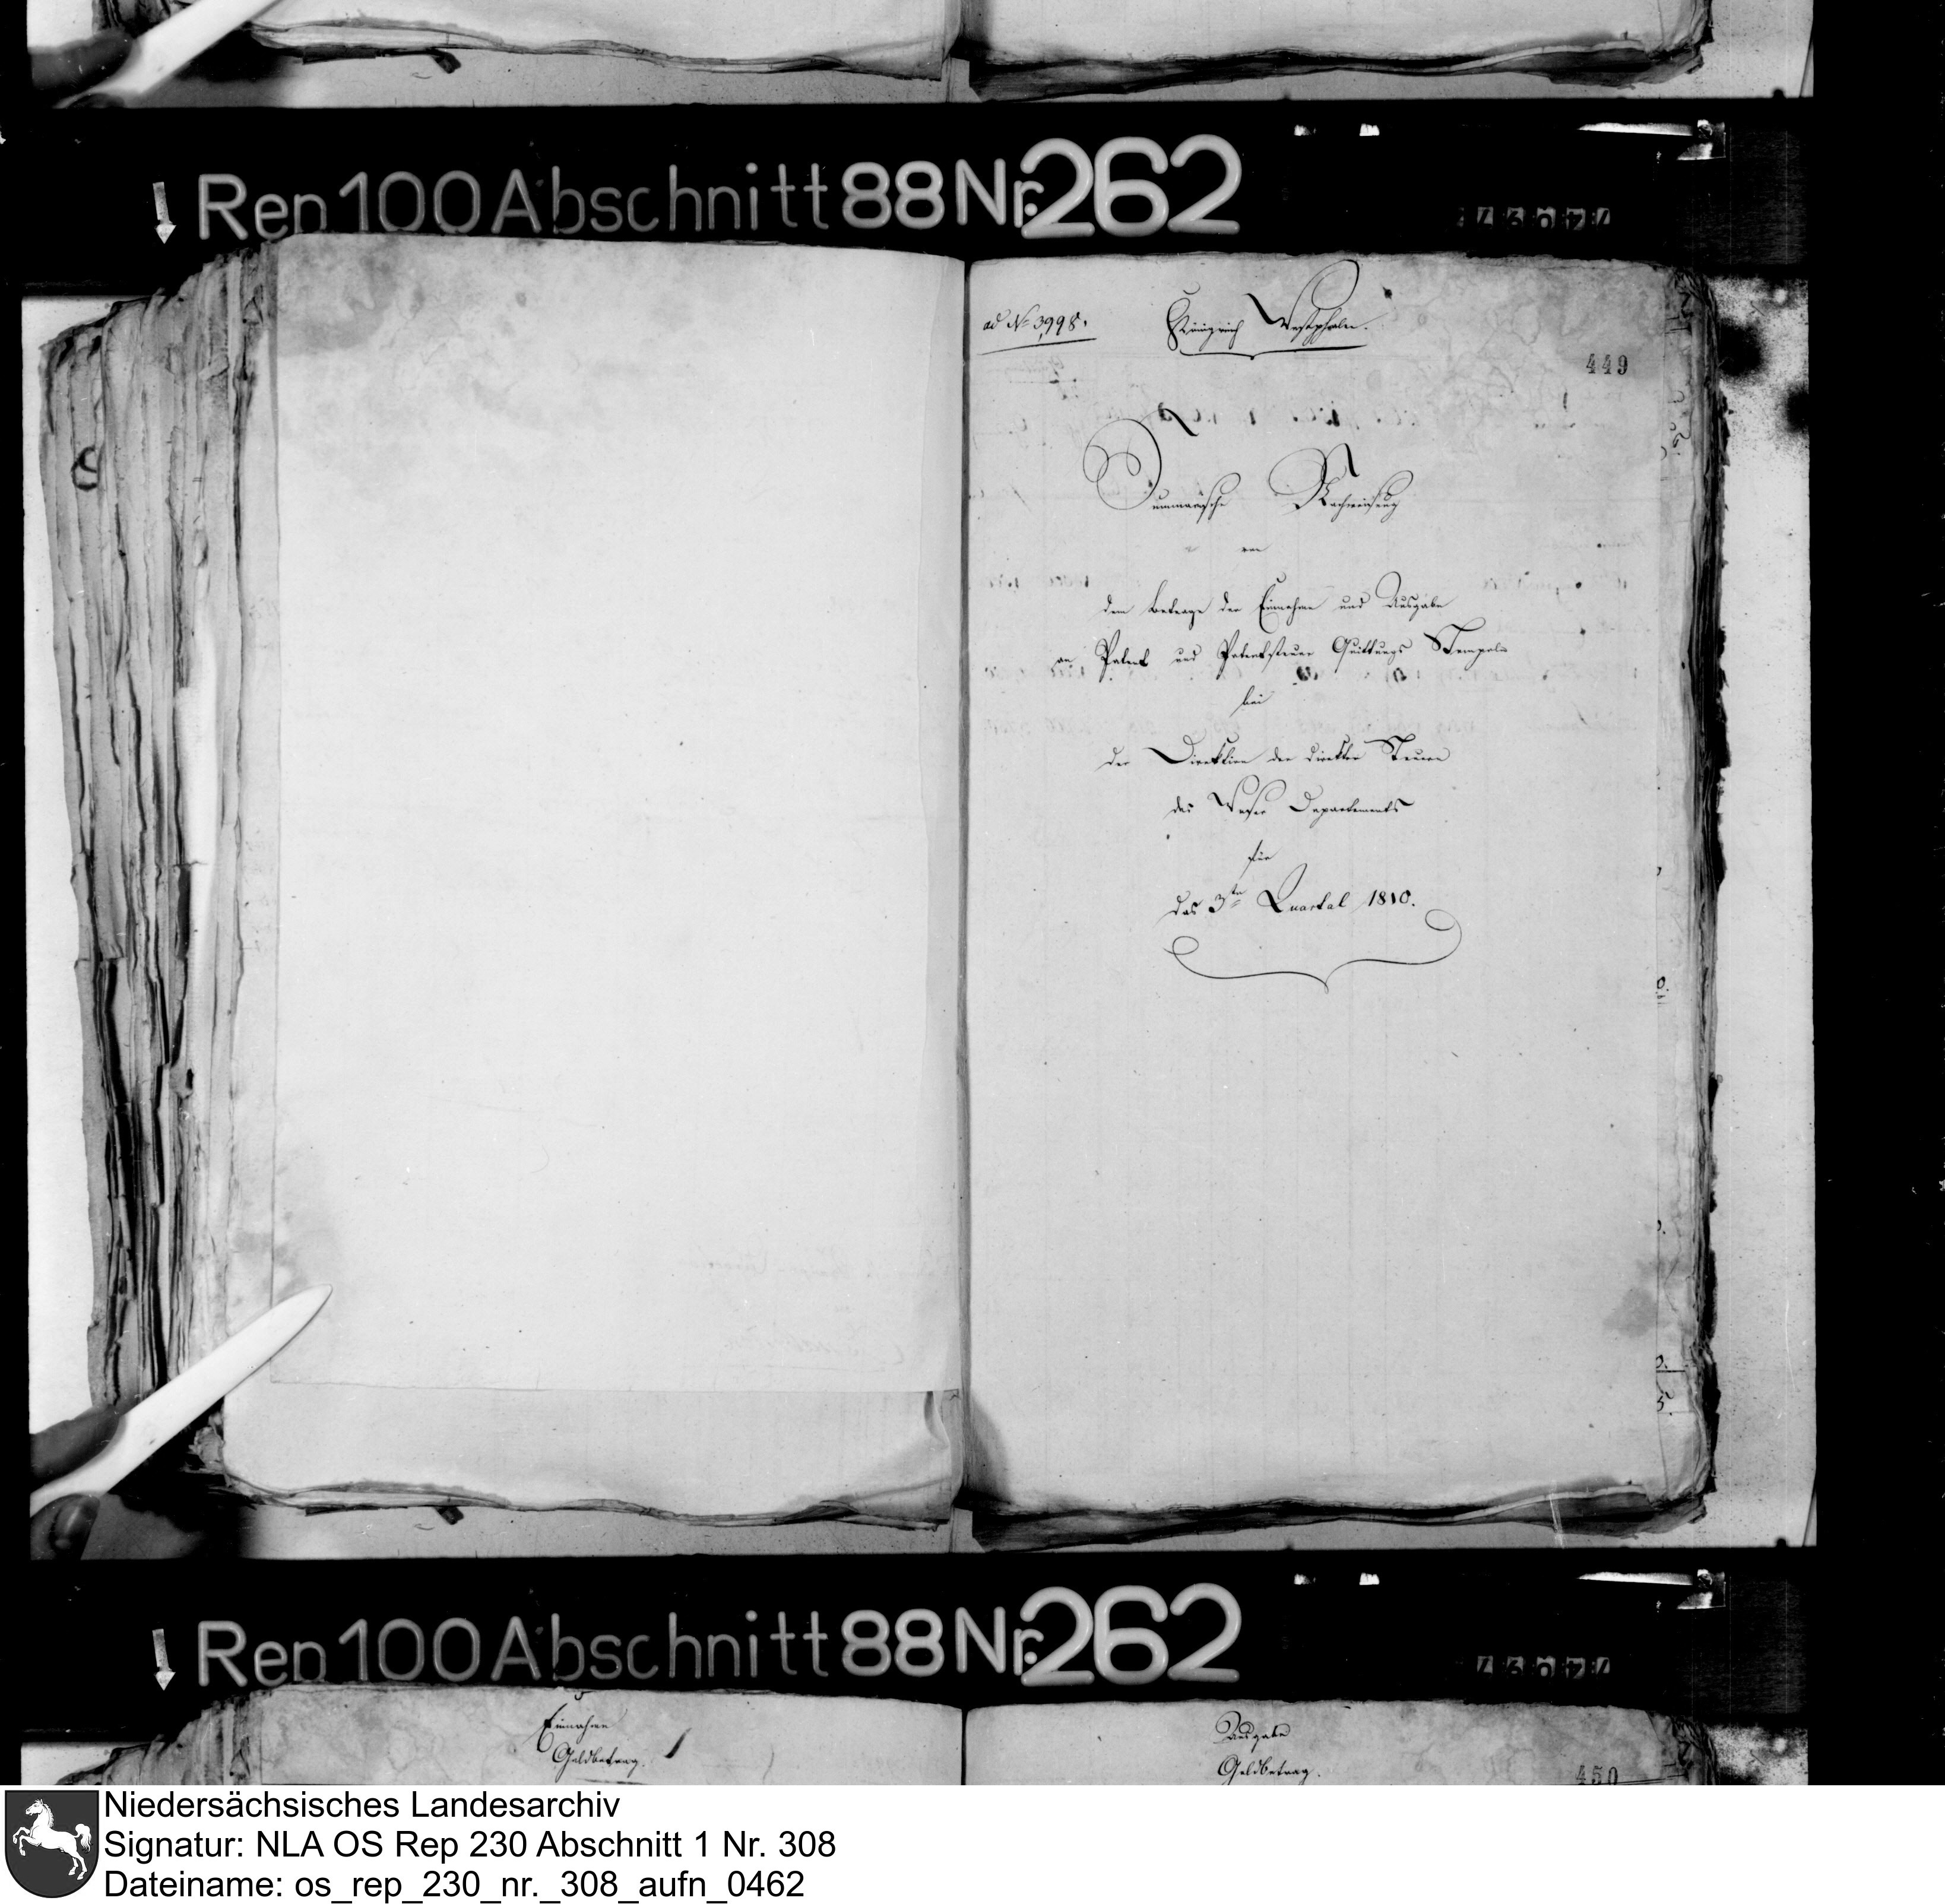 Rep 100 Abschnitt 88 Nr. 262
ad No 3998.
Königreich Westphalen.
449
Summarische Nachweisung
von
dem Betrage der Einnahme und Ausgabe
an Patent und Patentsteuer Quittungs Stempeln
bei
der Direktion der direkten Steuern
des Weser Departements
für
das 3te Quartal 1810.
Rep 100 Abschnitt 88 Nr. 262
Einnahme
Geldbetrag.
Ausgabe
Geldbetrag.
450
Niedersächsisches Landesarchiv
Signatur: NLA OS Rep 230 Abschnitt 1 Nr. 308
Dateiname: os_rep_230_nr._308_aufn_0462